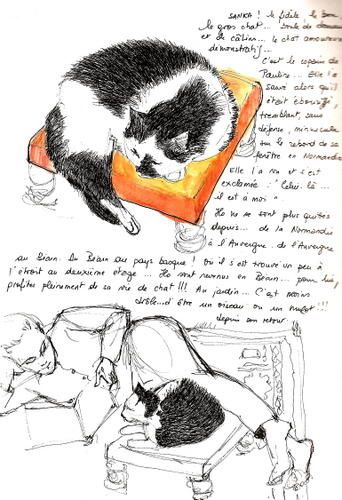 SANKA ! le fidèle, le bon
le gros chat... boule de
et de câlins... le chat amoureux
démonstratif...
C'est le copain de
Pauline... Elle l'a
sauvé alors qu'il
était ébouriffé,
tremblant, sans
défense, minuscule
sur le rebord de sa
fenêtre en Normandie
Elle l'a vu et s'est
exclamée : "Celui-là...
il est à moi"
Ils ne se sont plus quittés
depuis... de la Normandie
à l'Auvergne. de l'Auvergne
au Béarn. Du Béarn au pays basque ! Où il s'est trouvé un peu à
l'étroit au deuxième étage... Ils sont revenus en Béarn... pour lui,
profiter pleinement de sa vie de chat !!! Au jardin... C'est moins
drôle... d'être un oiseau ou un mulot !!!
depuis son retour